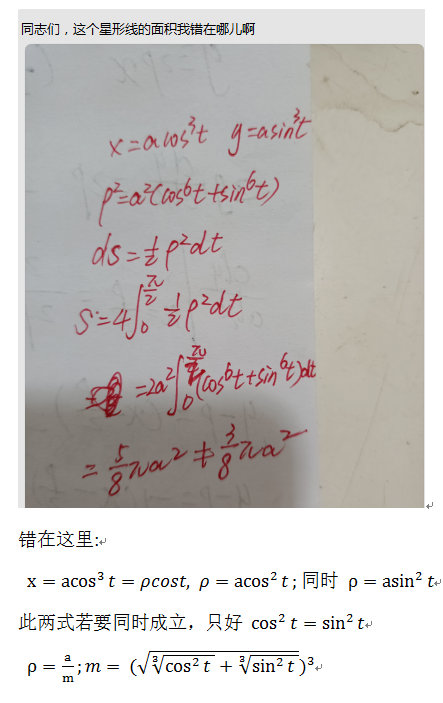 同志们，这个星形线的面积我错在哪儿啊
x=acos³t y=asin³t
ρ²=a²(cos⁶t+sin⁶t)
ds=½ρ²dt
S=4∫₀^(π/2) ½ρ²dt
=2a²∫₀^(π/2)(cos⁶t+sin⁶t)dt
=5/8πa²≠3/8πa²
错在这里:
x = acos³ t = ρcost, ρ = acos² t ; 同时 ρ = asin² t
此两式若要同时成立，只好 cos² t = sin² t
ρ = a/m ; m = (√(∛(cos² t) + ∛(sin² t)))³